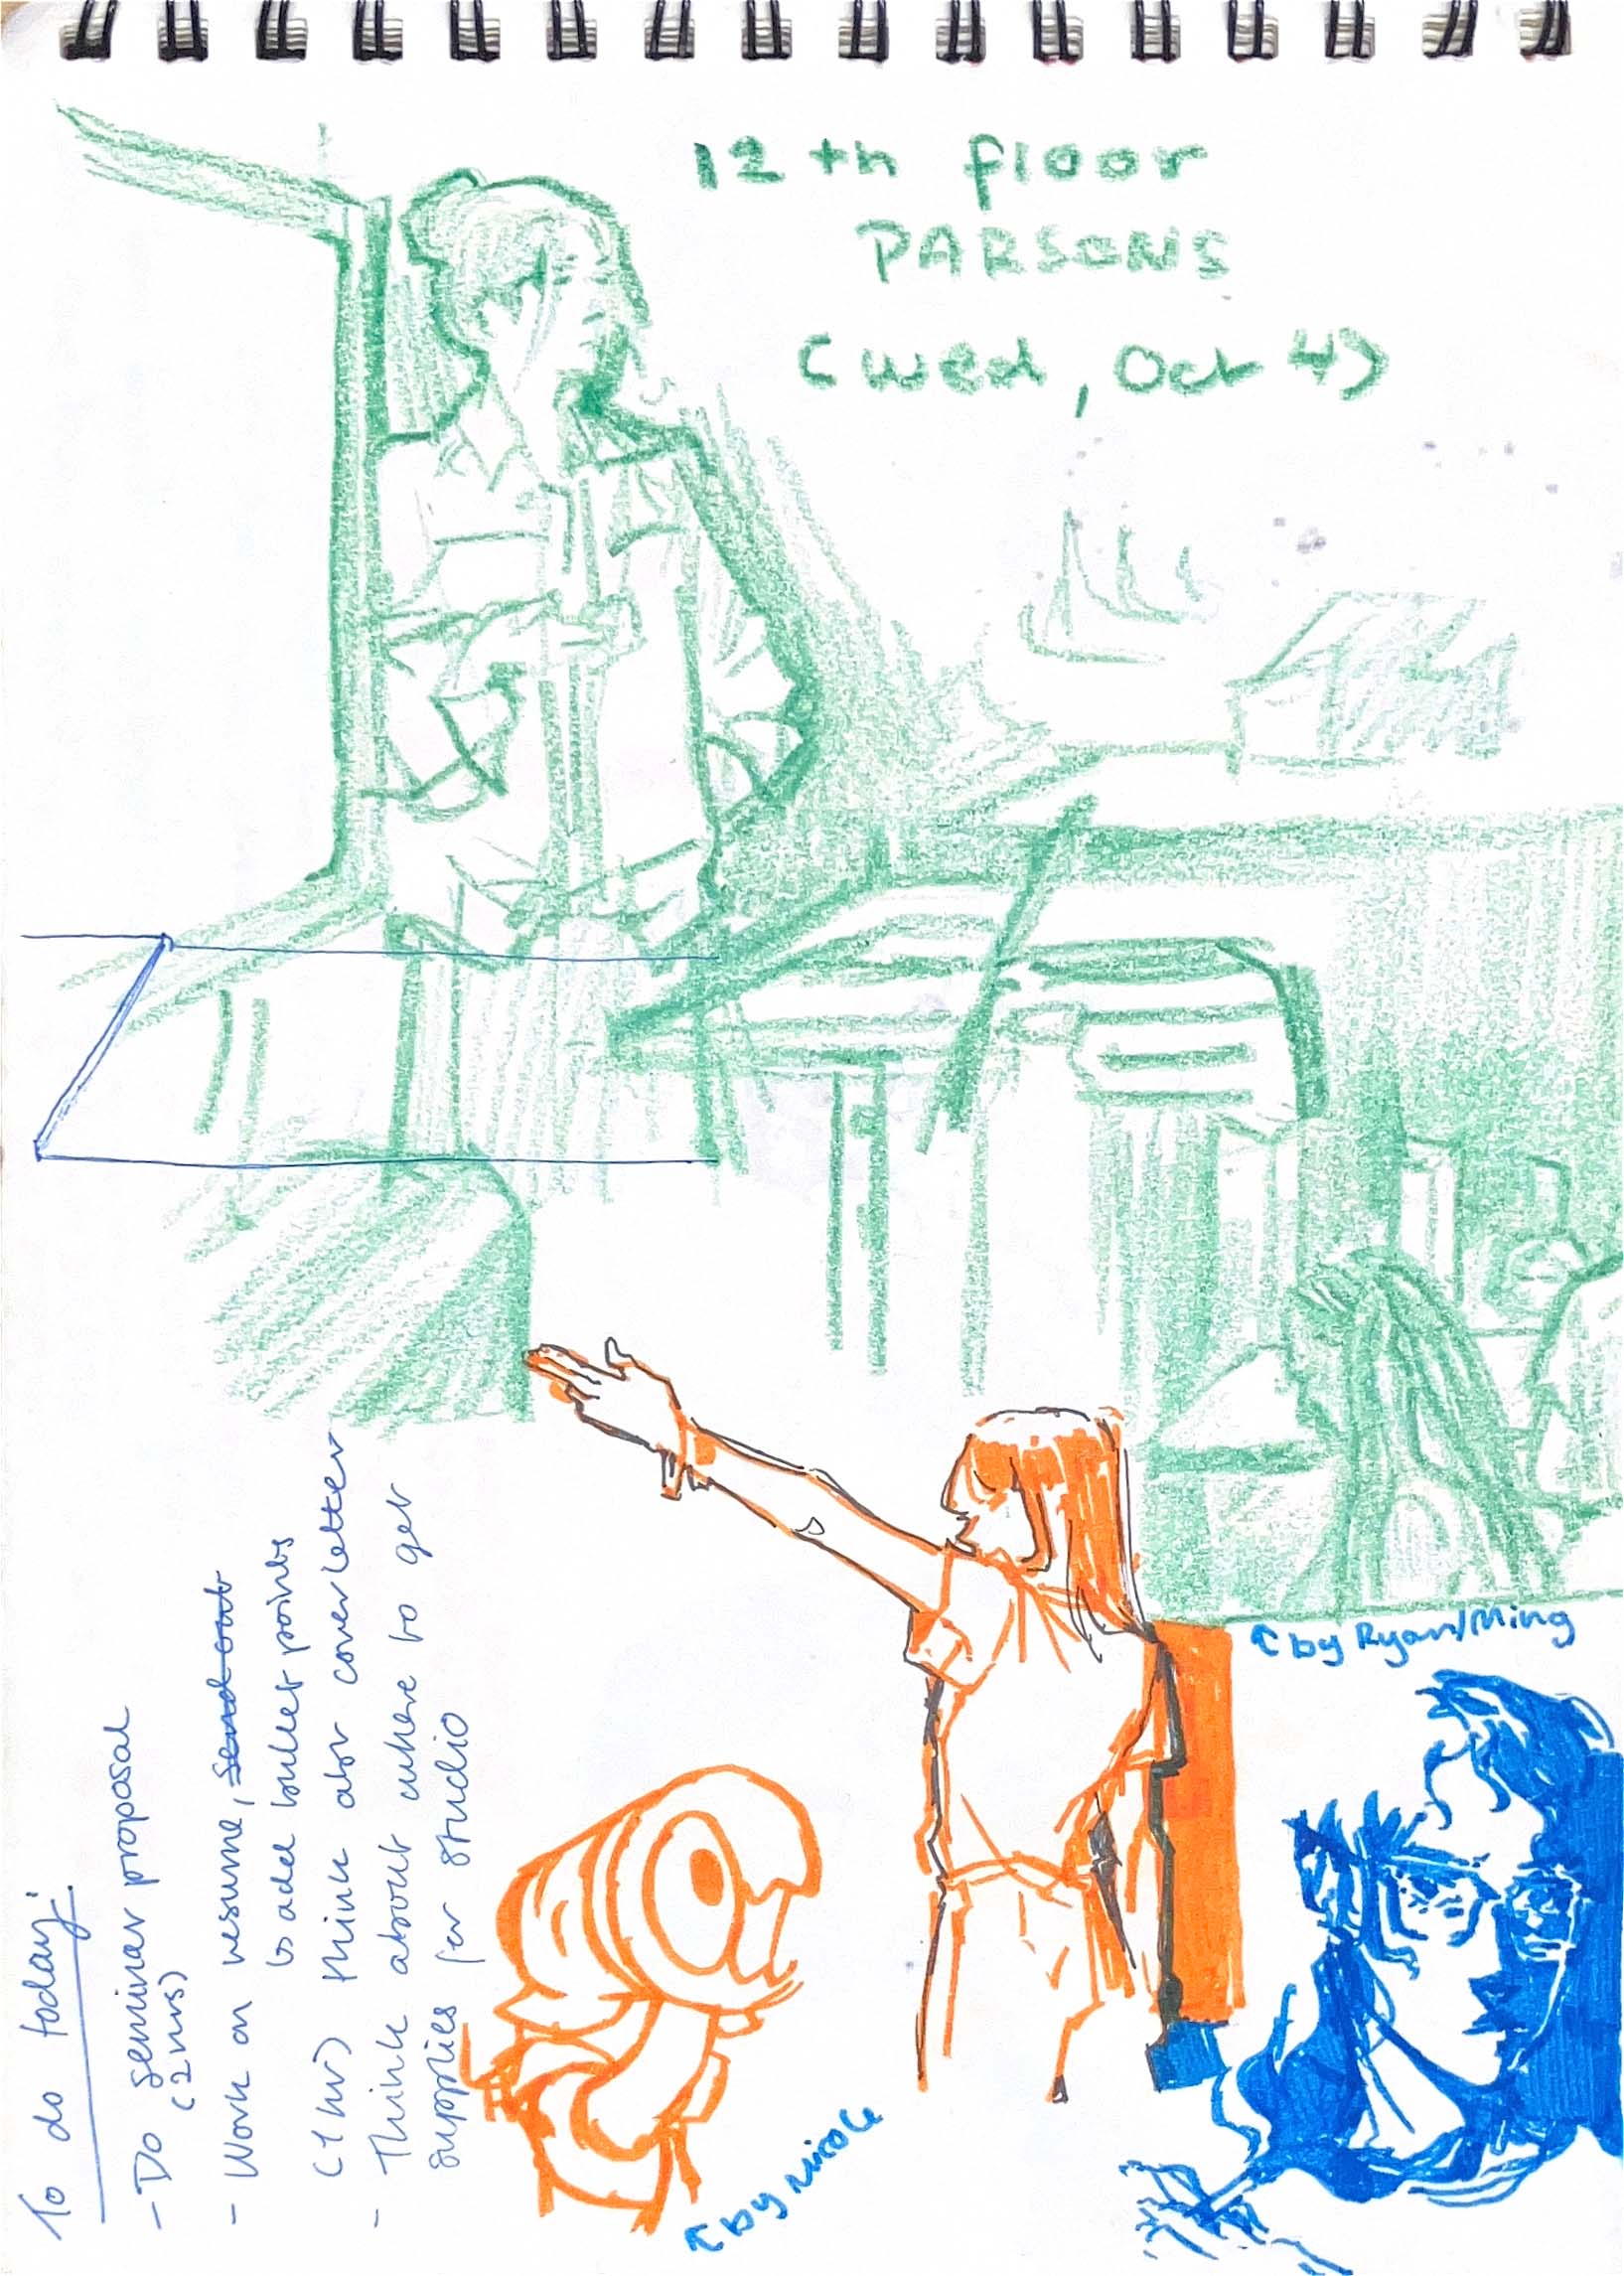 12th floor
PARSONS
(Wed, Oct 4)
To do today:
- Do seminar proposal
(2hrs)
- Work on resume, send out
↳ add bullet points
(1 hr) think abt coverletter
- Think about where to get
supplies for studio
↖ by Ryan/Ming
↖ by Nicole